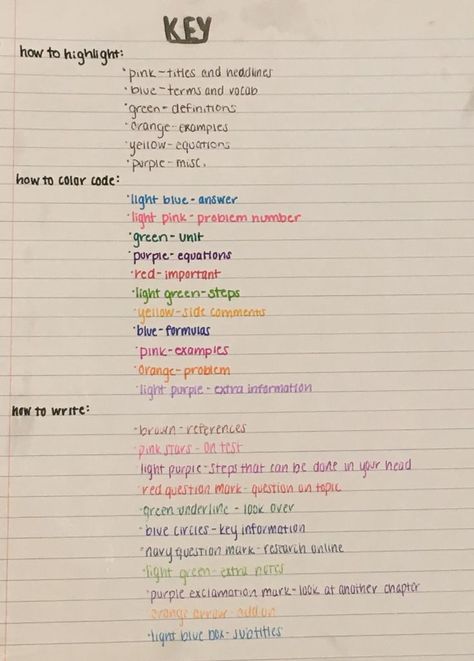 KEY
how to highlight:
· pink - titles and headlines
· blue - terms and vocab
· green - definitions
· orange - examples
· yellow - equations
· purple - misc.
how to color code:
· light blue - answer
· light pink - problem number
· green - unit
· purple - equations
· red - important
· light green - steps
· yellow - side comments
· blue - formulas
· pink - examples
· orange - problem
· light purple - extra information
how to write:
· brown - references
· pink stars - on test
· light purple - steps that can be done in your head
· red question mark - question on topic
· green underline - look over
· blue circles - key information
· navy question mark - research online
· light green - extra notes
· purple exclamation mark - look at another chapter
· orange arrow - add on
· light blue box - subtitles